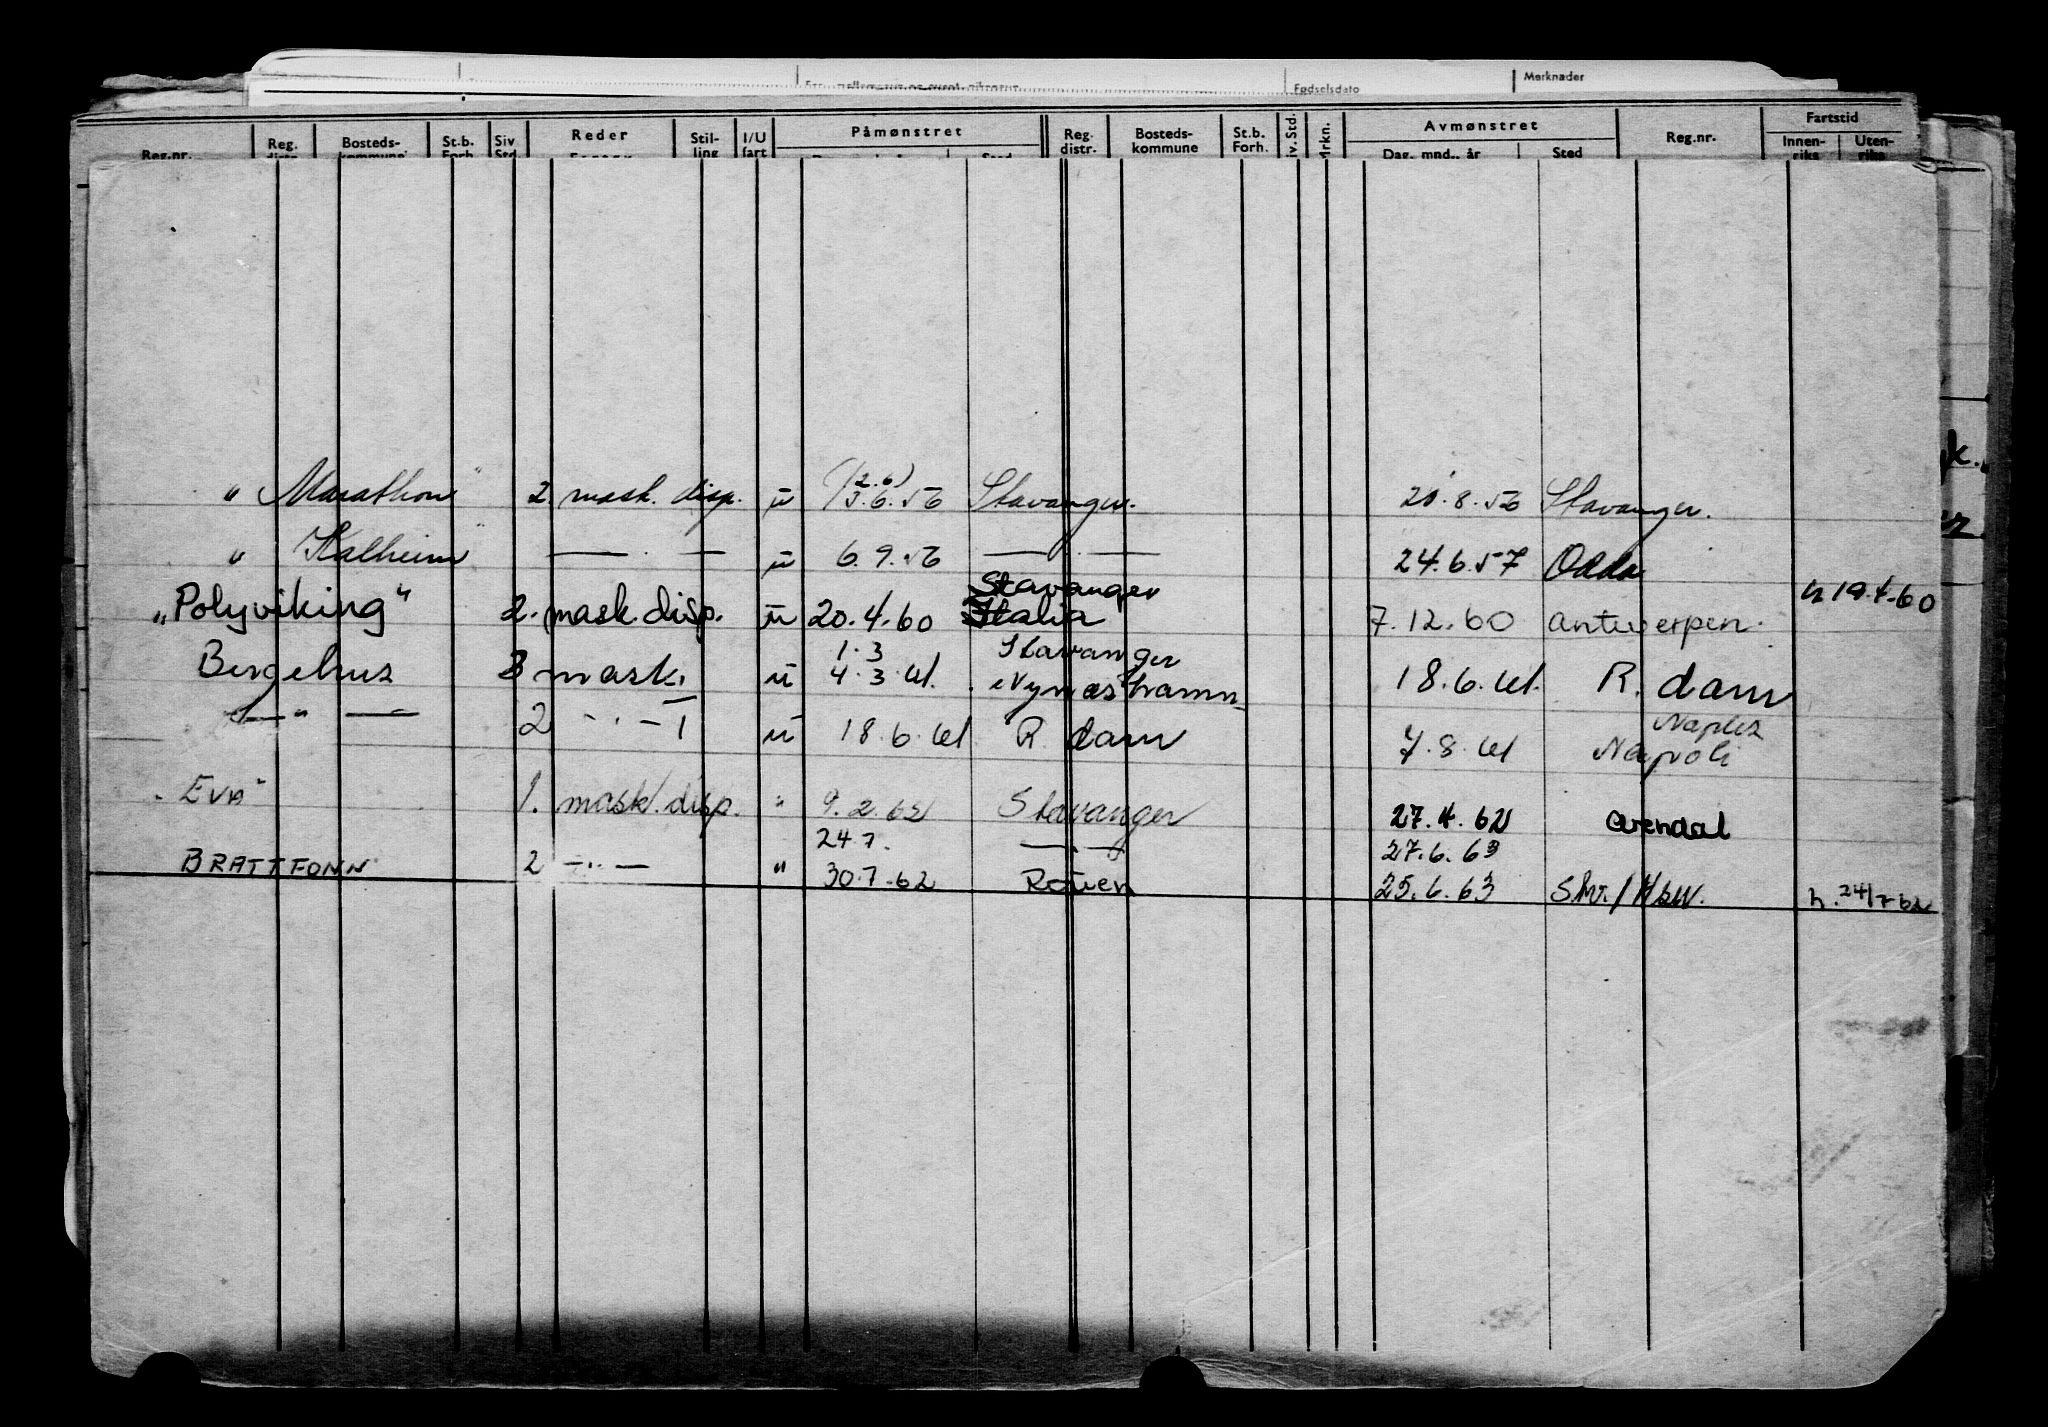 Merknader
Fødselsdato
Reg.nr. Reg. distr. Bosteds- kommune St.b. Forh. Siv Std Reder Stil- ling I/U fart Påmønstret Reg. distr. Bosteds- kommune St.b. Forh. iv. Std. Mrkn. Avmønstret Dag, mnd., år Sted Reg.nr. Fartstid Innen- riks Uten- riks
" Marathon" 2. mask. disp. u (12.6) 13.6.56 Stavanger. 21.8.56 Stavanger.
" Kalheim" — . — u 6.9.56 — . — 24.6.57 Odda
"Polyviking" 2. mask. disp. u 20.4.60 Stavanger Italia 7.12.60 antwerpen. h 19.4.60
Bergehus 3 mask. u 1.3 4.3.61. Stavanger Nynæshamn 18.6.61. R.dam
— " — 2 — . — I u 18.6.61 R.dam 7.8.61 Naples Napoli
"EVA" 1. mask. disp. " 9.2.62 Stavanger 27.4.62 arendal
24.7. — . — 27.6.63
BRATTFONN 2 — .. — " 30.7.62 Rouen 25.6.63 h. 24/7-62